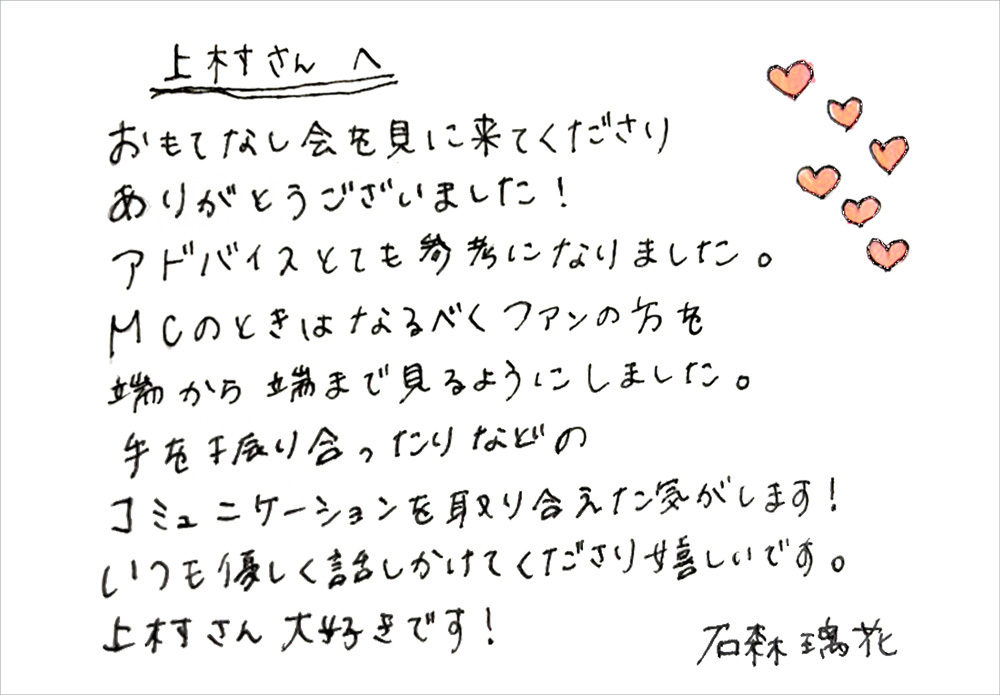 上村さん へ
おもてなし会を見に来てくださり
ありがとうございました！
アドバイスとても参考になりました。
MCのときはなるべくファンの方を
端から端まで見るようにしました。
手を振り合ったりなどの
コミュニケーションを取り合えた気がします！
いつも優しく話しかけてくださり嬉しいです。
上村さん大好きです！
石森璃花